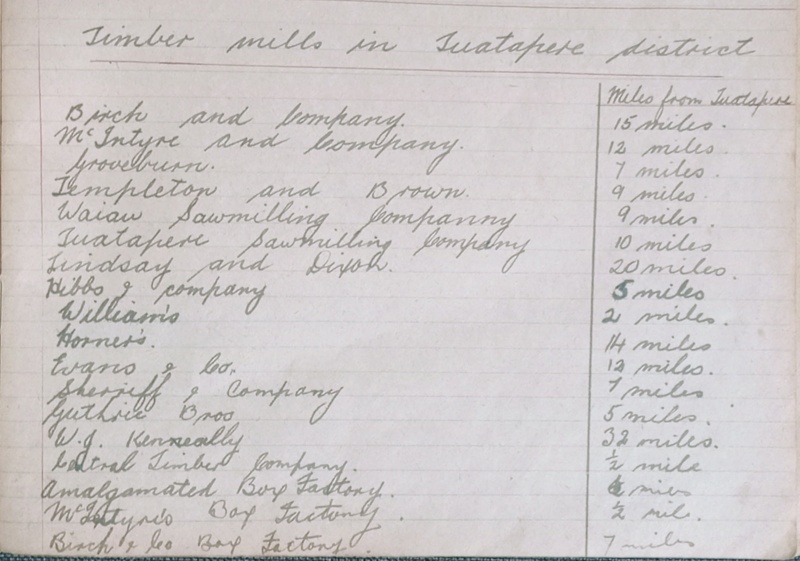 Timber mills in Tuatapere district
Miles from Tuatapere
Birch and Company. 15 miles.
McIntyre and Company. 12 miles.
Groveburn. 7 miles.
Templeton and Brown. 9 miles.
Waiau Sawmilling Companny 9 miles.
Tuatapere Sawmilling Company 10 miles
Lindsay and Dixon. 20 miles.
Hibbs & company 5 miles
William's 2 miles.
Horner's. 14 miles
Evans & Co. 12 miles.
Sherriff & Company 7 miles
Guthrie Bros 5 miles.
W.J. Kenneally 32 miles.
Timber Company. ½ mile
Amalgamated Box Factory.
McIntyre's Box Factory. ½ mile.
Birch & Co Box Factory. 7 miles